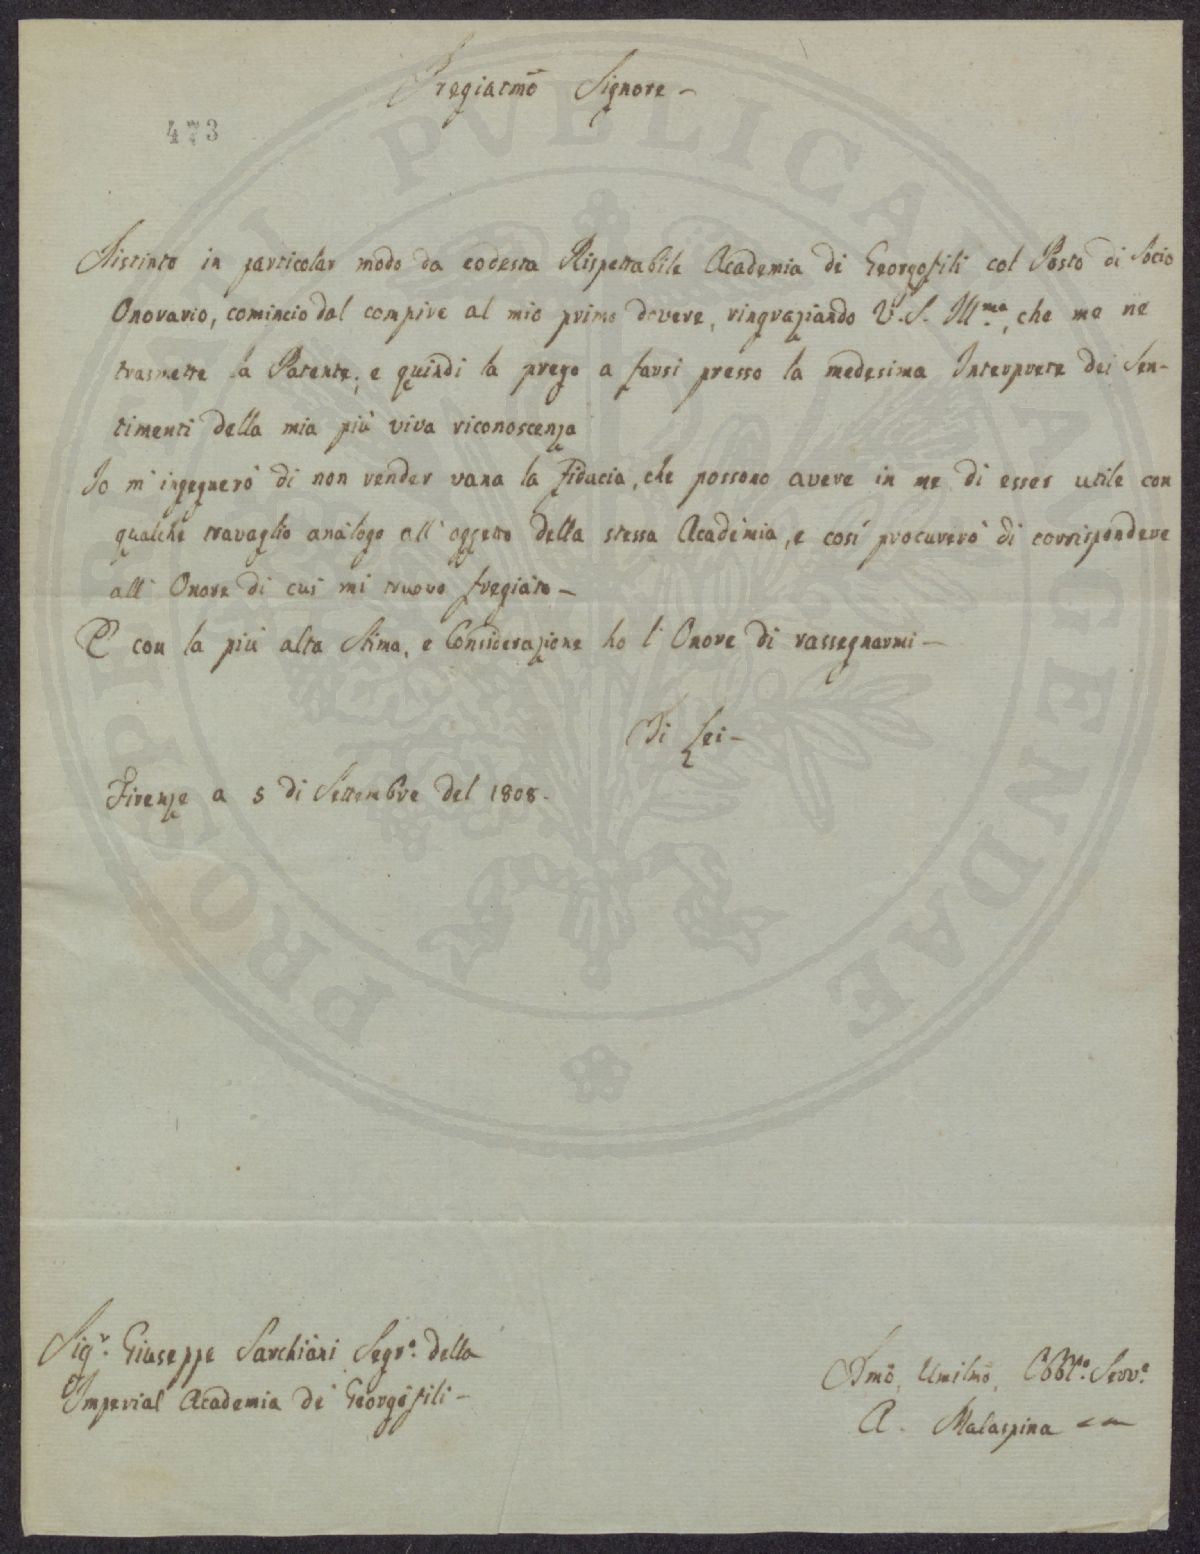 Pregiatmo Signore -
473
Distinto in particolar modo da codesta Rispettabile Academia di Georgofili col Posto di Socio
Onorario, comincio dal compire al mio primo dovere, ringraziando V.S. Ill.ma, che me ne
trasmette la Patente; e quindi la prego a farsi presso la medesima Interprete dei Sen-
timenti della mia più viva riconoscenza
Io m'ingegnerò di non render vana la Fiducia, che possono avere in me di esser utile con
qualche travaglio analogo all'oggetto della stessa Academia, e così procurerò di corrispondere
all'Onore di cui mi truovo fregiato -
E con la più alta Stima, e Considerazione ho l'Onore di rassegnarmi -
Di Lei -
Firenze a 5 di Settembre del 1808 -
Sigr. Giuseppe Sarchiani Segr.o della
Imperial Academia de' Georgofili -
Dmo, Umilmo, Obbl.o Serv.e
A. Malaspina
PROSPERITATI PVBLICAE AVGENDAE